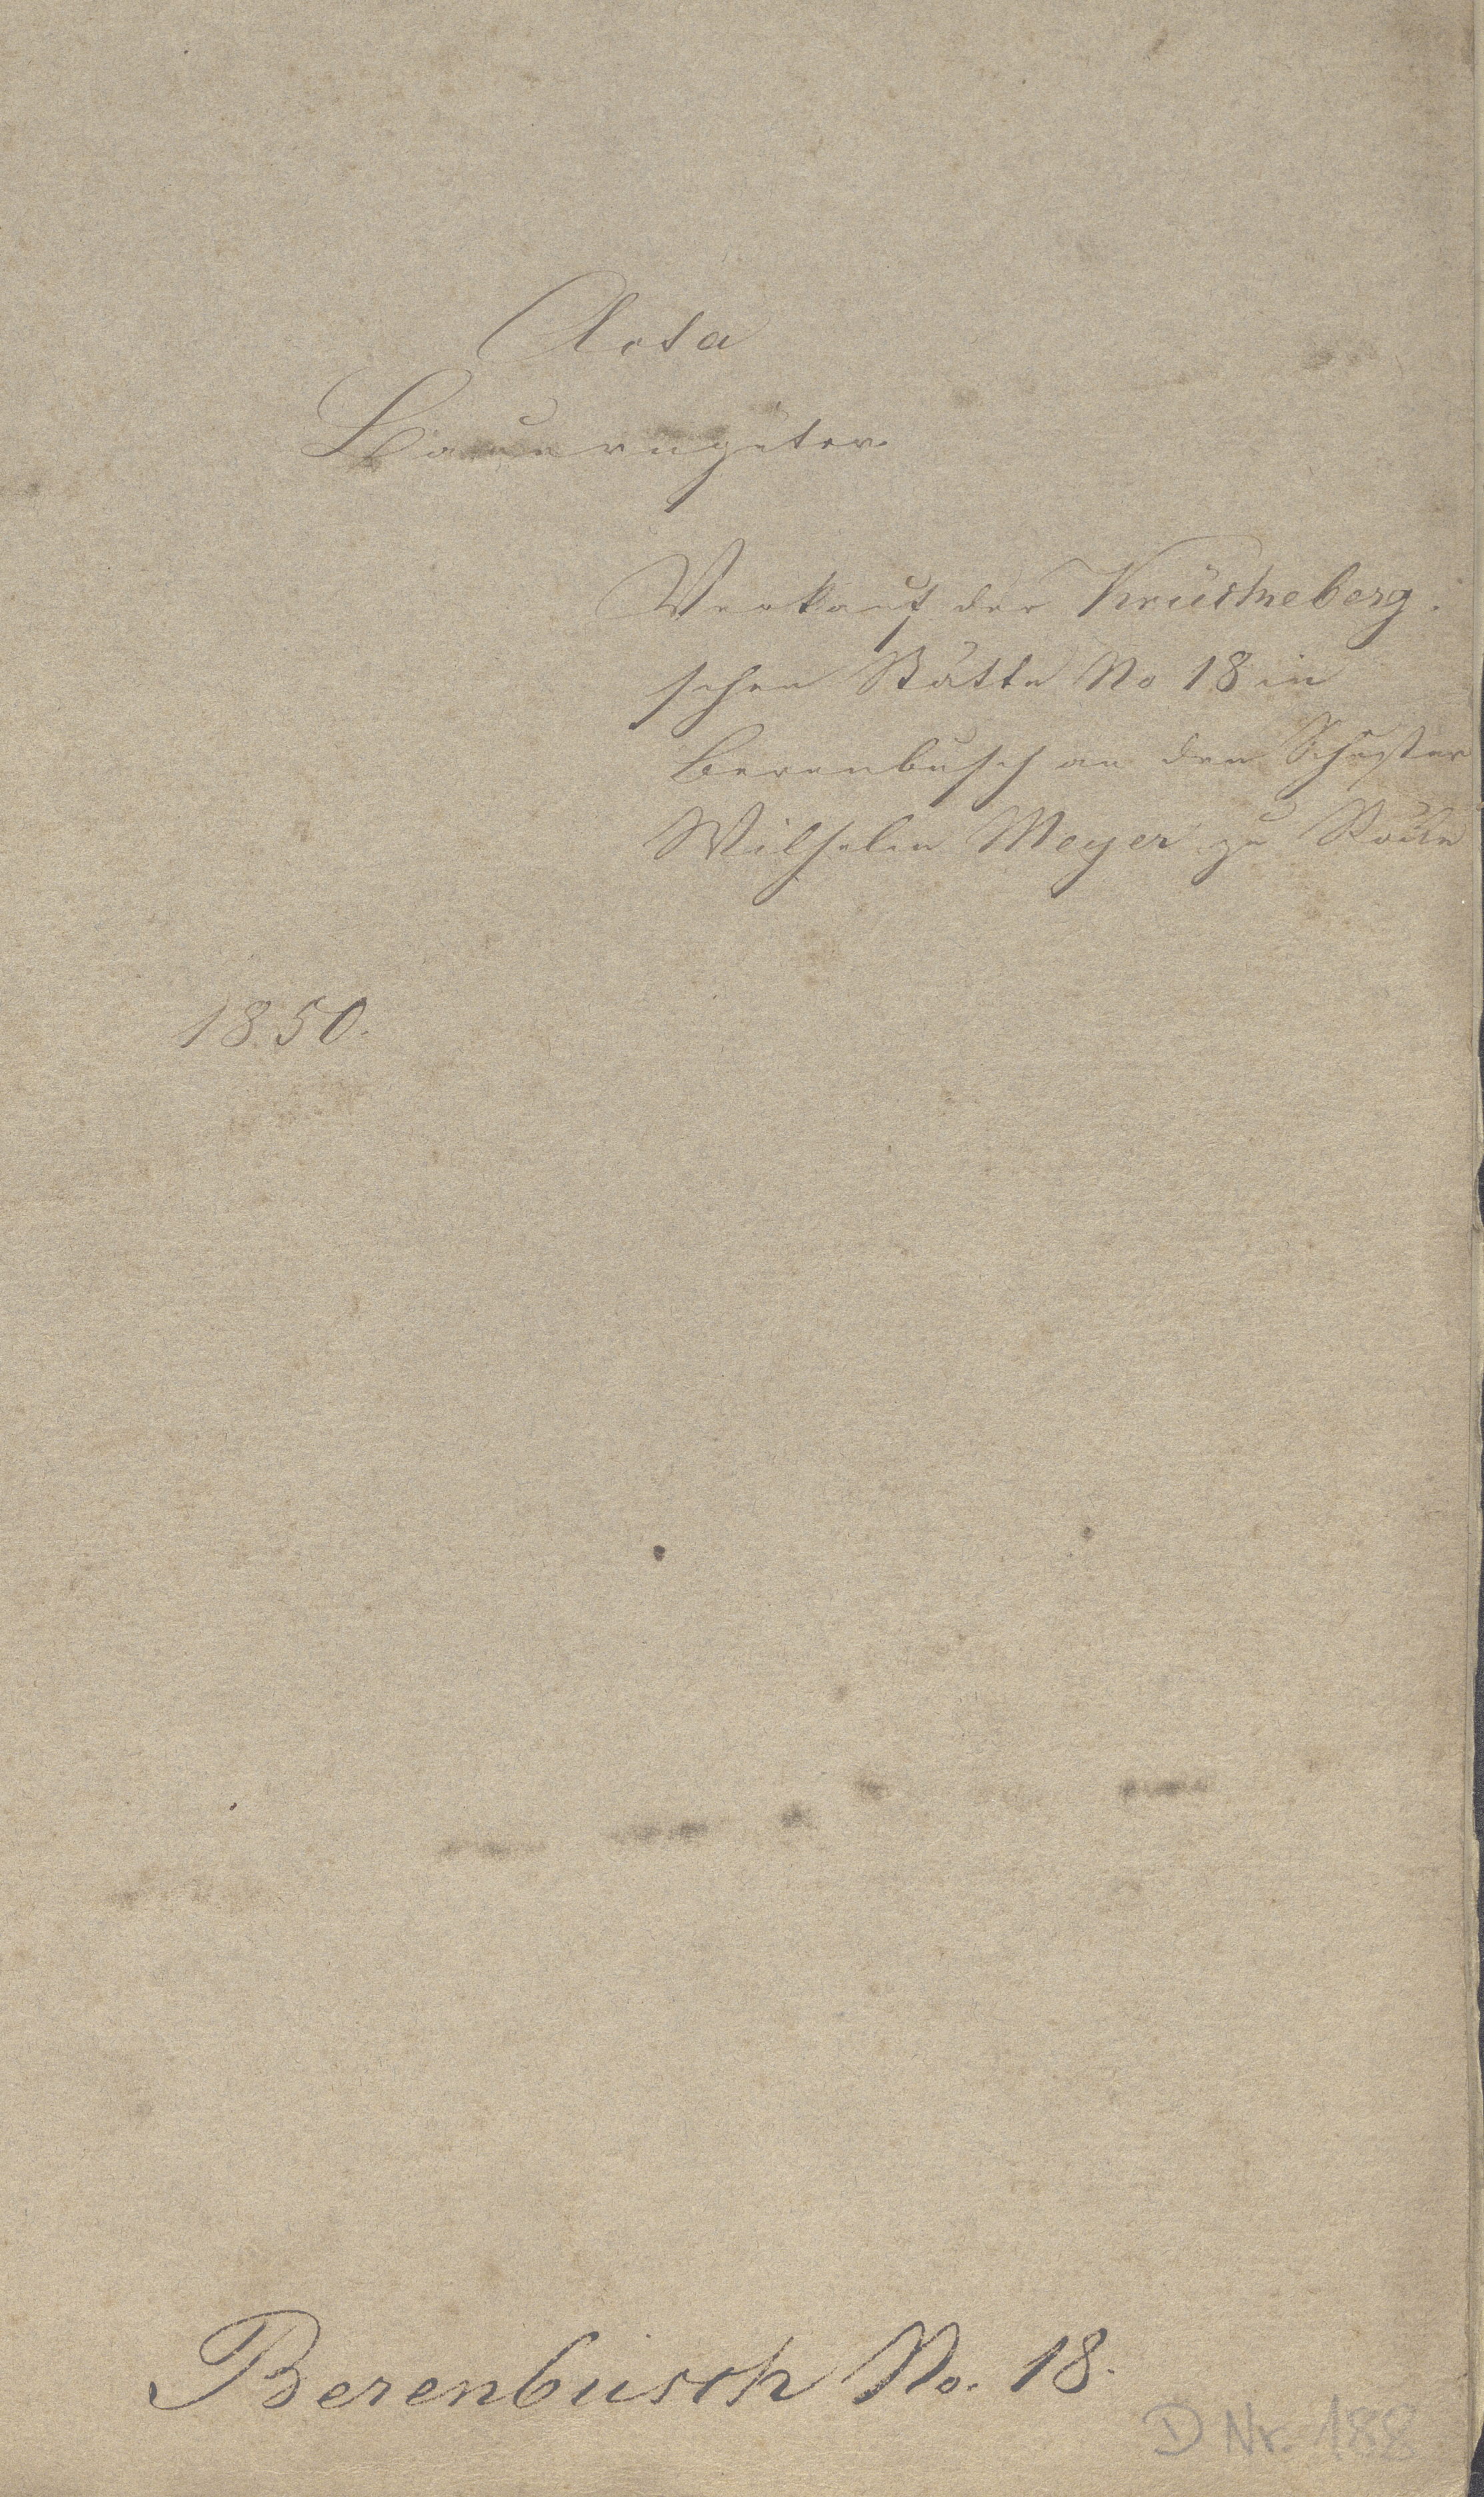 Acta
Bauerngüter
Verkauf der Krückeberg.
schen Stätte No 18 in
Berenbusch an den Schuster
Wilhelm Meyer zu
1850.
Berenbusch No. 18.
D Nr. 188